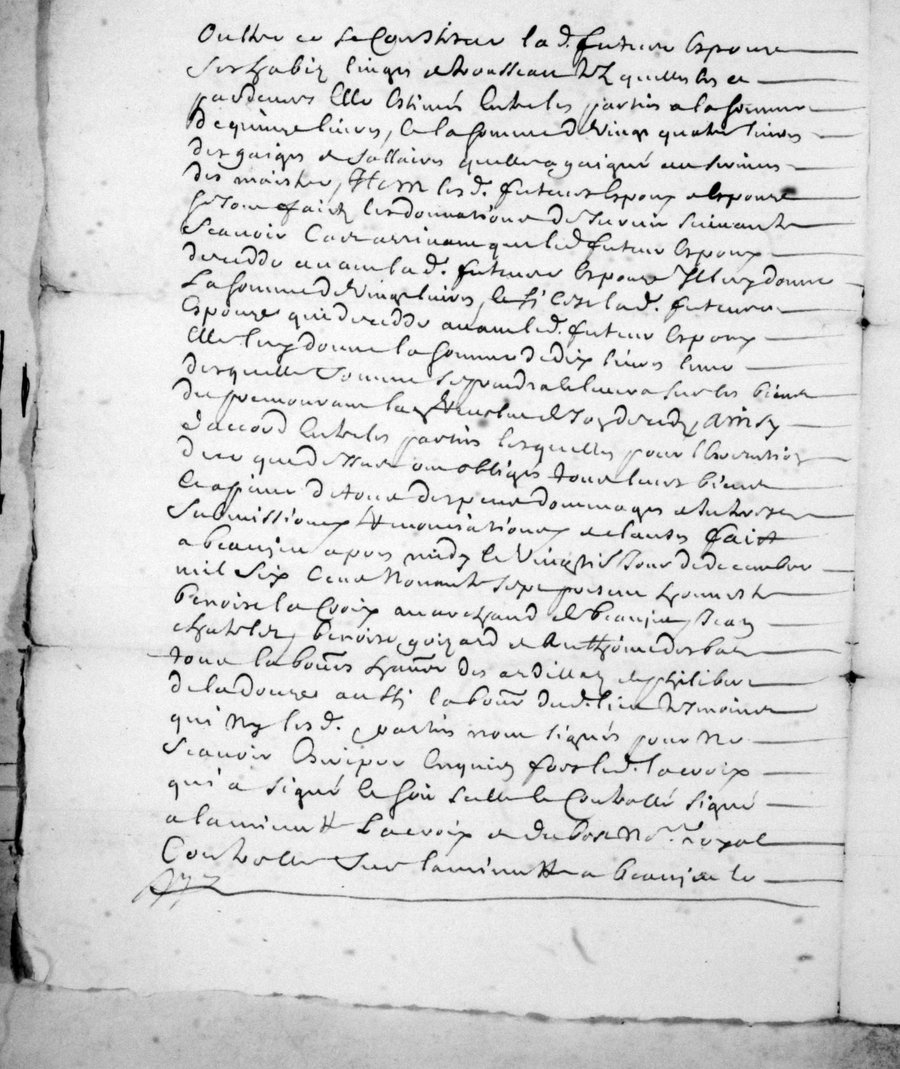 Oultre ce se Constitue lad. future Espouse
ses habiz linges et trousseau tel quelles les a
par devers Elle Estimés Entre les parties a la somme
de quinze livres, Et la somme de Vingt quatre livres
des gaiges et sallaires quelle a gaigné au service
des maistres, Item lesd. futeurs Espoux et Espouse
se sont faictz les donnations de survie suivante
Scavoir Cas arrivant que led. futeur Espoux
decedde avant lad. future Espouse Il luy donne
La somme de Vingt livres, Et si Cest lad. future
Espouse qui decedde avant led. futeur Espoux
Elle luy donne la somme de dix livres
desquelles somme se prendra et levera sur les biens
du premourant Ainsy
d'accord Entre les parties lesquelles pour l'Execution
de ce que dessus ont obligés tous leurs biens
a peine de tous despens dommages et Interestz
submissions renonciations et clauses fait
a beaujeu apres midy le Vingtsix Jour de decembre
mil six Cent Nonante sept present honneste
benoist la Croix marchand de beaujeu, Jean
benoist goizard et Anthoine desbas
tous labours habitans des ardillatz et philibert
de la doure aussi labour dud. lieu tesmoins
qui Ny lesd. parties nont signés pour Ne
Scavoir Enquis fors led. lacroix
qui a signé le soir selle le Controllé signé
a la minutte Lacroix et dubost No.re royal
Controllé sur la minutte a beaujeu le